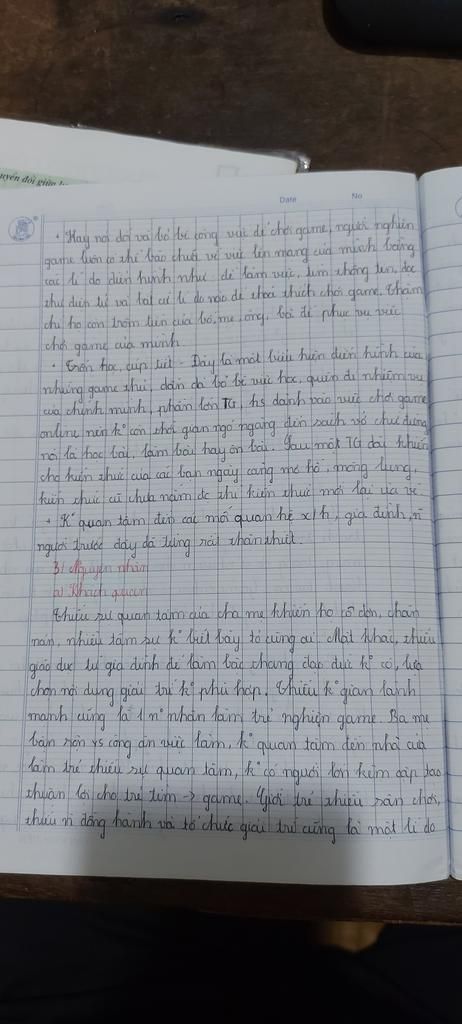 uyển đổi giữa
Date No
• Hay nói dối và bỏ bê công việc để chơi game, người nghiện
game luôn có thể bào chữa về việc lên mạng của mình bằng
các lí do điển hình như: để làm việc, tìm thông tin, đọc
thư điện tử và bất cứ lí do nào để thoả thích chơi game, thậm
chí họ còn trộm tiền của bố, mẹ, ông, bà để phục vụ việc
chơi game của mình.
• Trốn học, cúp tiết - Đây là một biểu hiện điển hình của
những game thủ, dần dà bỏ bê việc học, quên đi nhiệm vụ
của chính mình, phần lớn TG, hs dành vào việc chơi game
online nên k° còn thời gian ngó ngàng đến sách vở chứ đừng
nói là học bài, làm bài hay ôn bài. Sau một TG dài khiến
cho kiến thức của các bạn ngày càng mơ hồ, mông lung,
kiến thức cũ chưa nắm đc thì kiến thức mới lại ùa về.
• K° quan tâm đến các mối quan hệ x/h, gia đình, n
người trước đây đã từng rất thân thiết.
3/ Nguyên nhân
a) Khách quan
Thiếu sự quan tâm của cha mẹ khiến họ cô đơn, chán
nản, nhiều tâm sự k° biết bày tỏ cùng ai. Mặt khác, thiếu
giáo dục từ gia đình để làm bậc thang đạo đức k° có, lựa
chọn nội dung giải trí k° phù hợp, thiếu k° gian lành
mạnh cũng là 1 n° nhân làm trẻ nghiện game. Ba mẹ
bận rộn vs công ăn việc làm, k° quan tâm đến nhà cửa
làm trẻ thiếu sự quan tâm, k° có người lớn kèm cặp tạo
thuận lợi cho trẻ tìm → game. Giới trẻ thiếu sân chơi,
thiếu n đồng hành và tổ chức giải trí cũng là một lí do